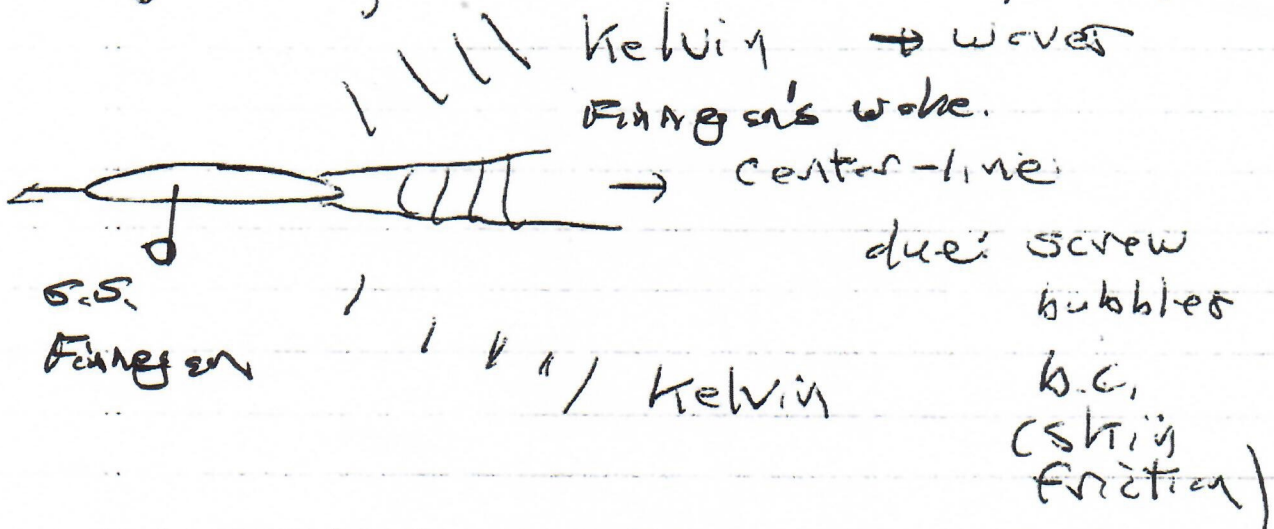 Kelvin → waves
Finnegan's wake.
→ center-line
due: screw
bubbles
b.c.
(skin
friction)
S.S.
Finnegan
Kelvin